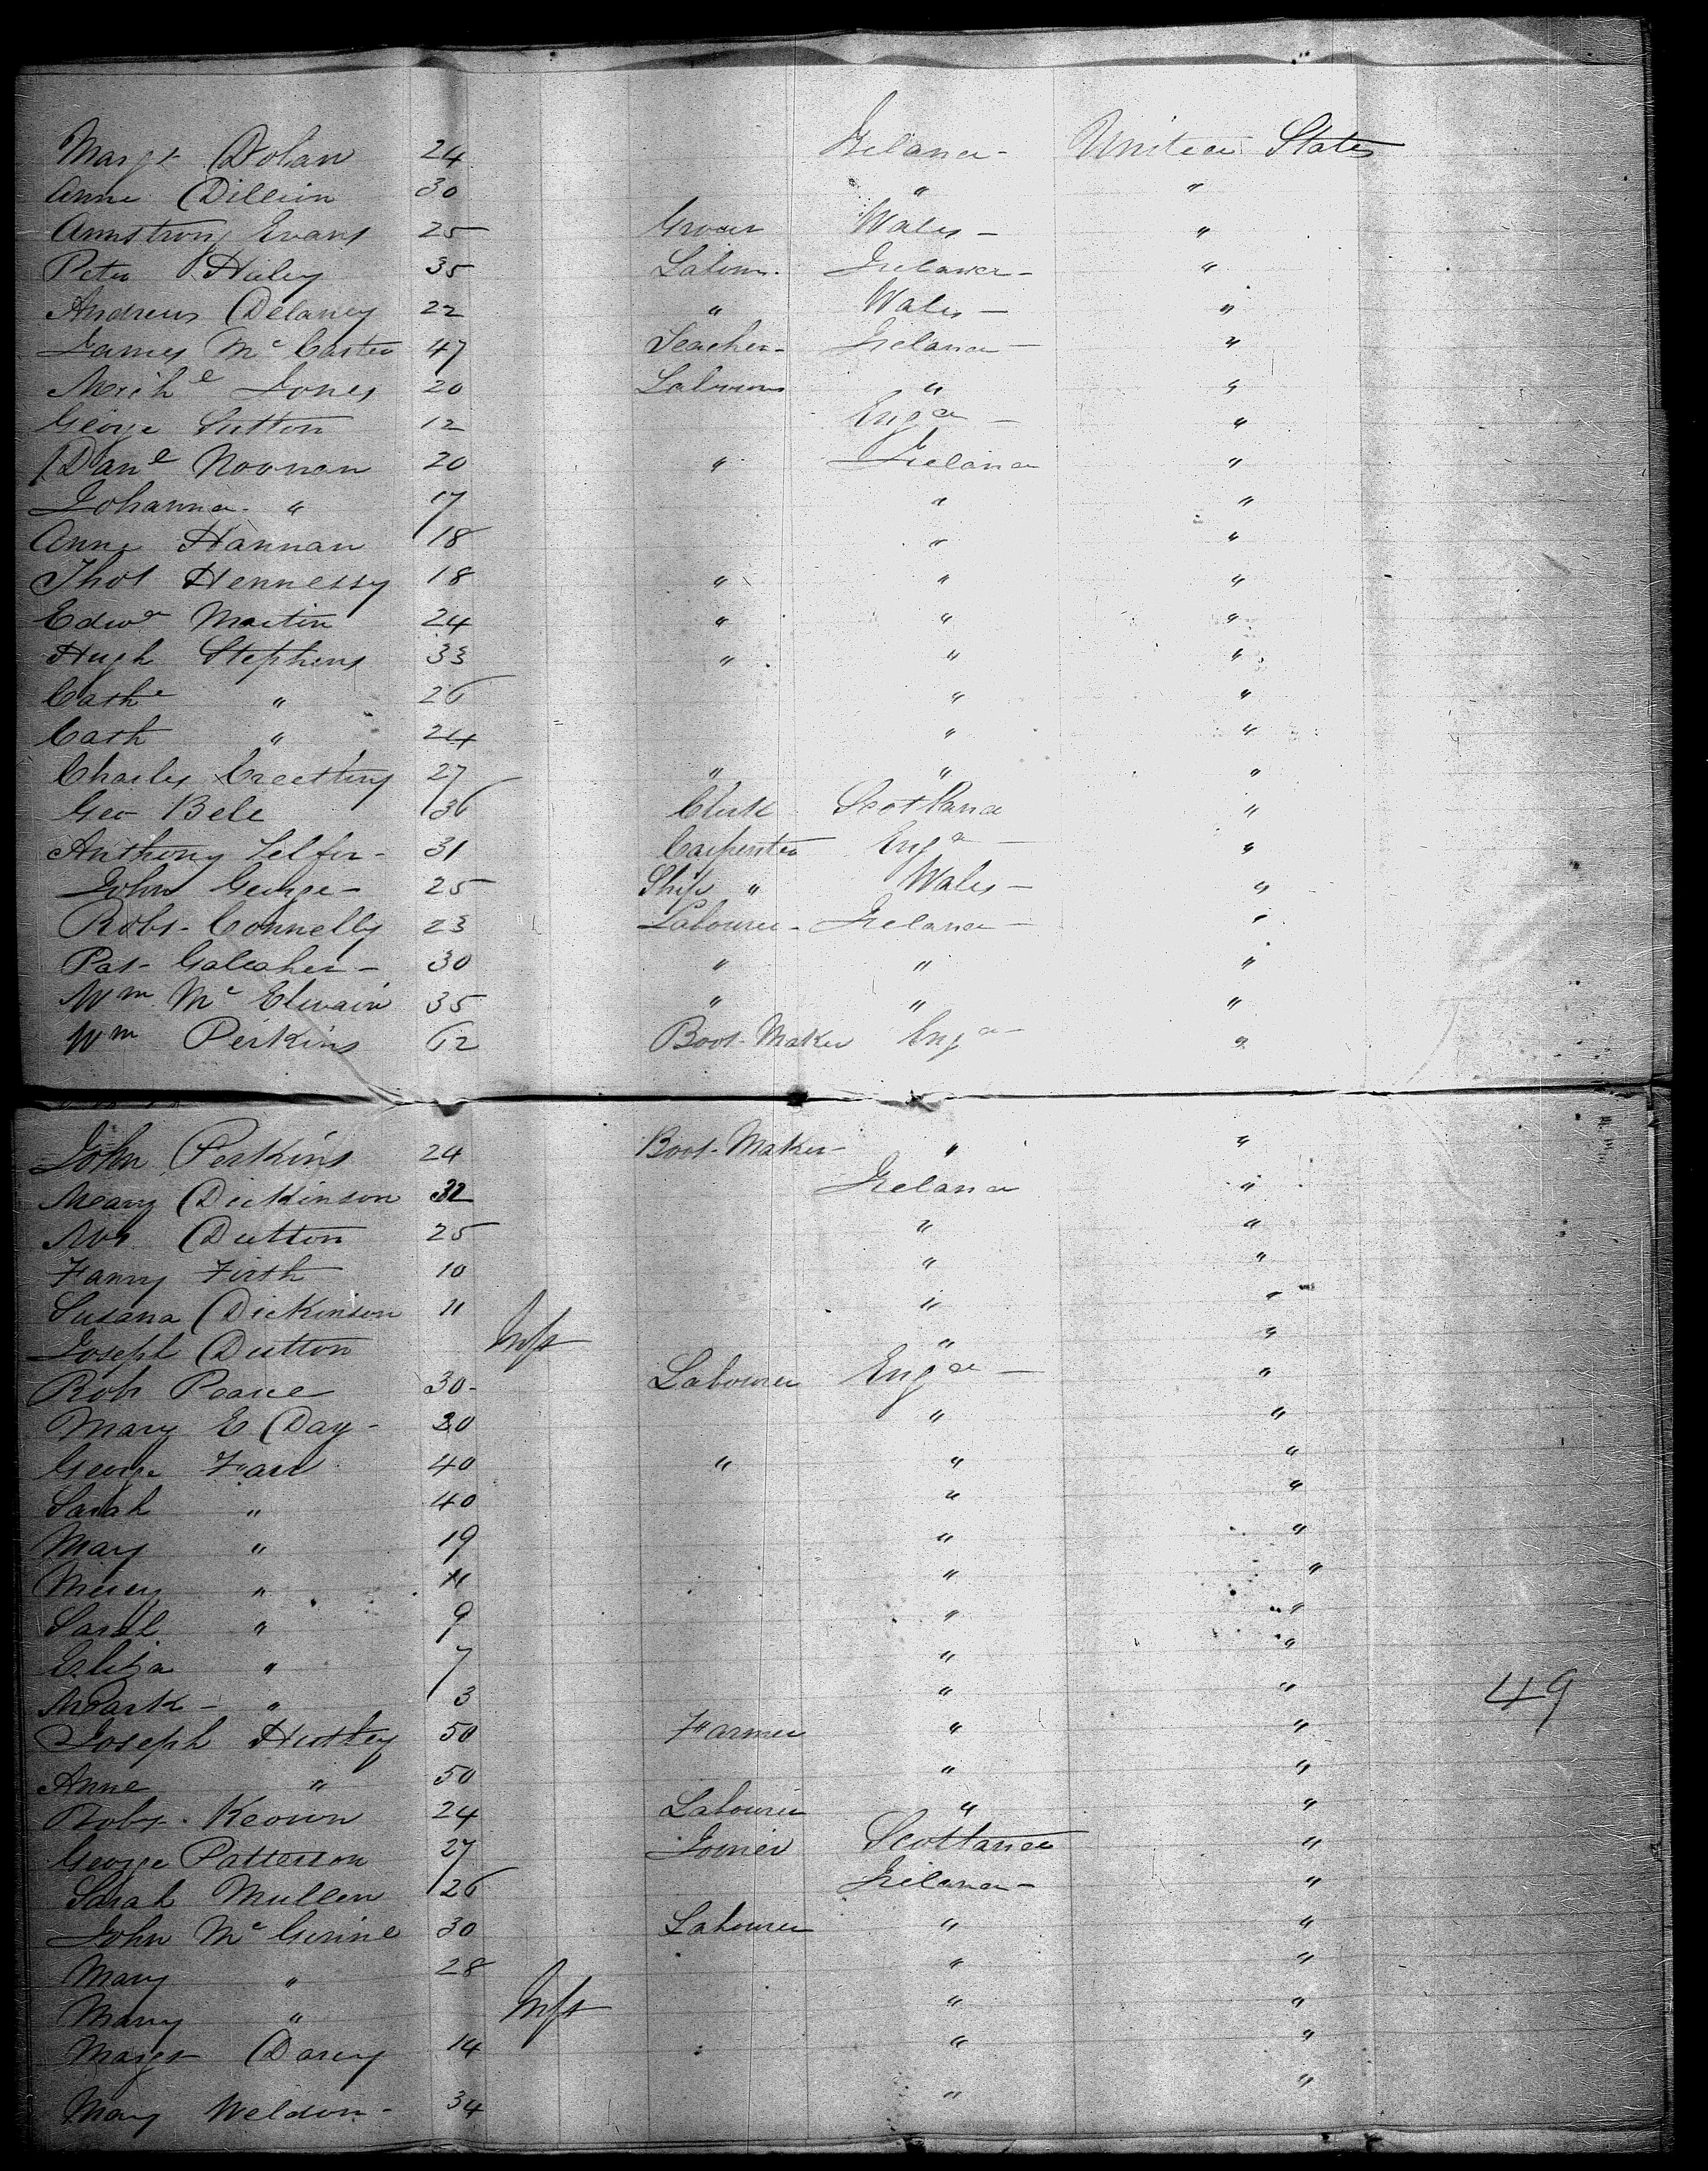 Margt Dolan 24 Ireland - United States
Anne Dillion 30 " "
Armstrong Evans 25 Grocer Wales - "
Peter Hiley 35 Labour. Ireland - "
Andrew Delaney 22 " Wales - "
James Mc Carter 47 Teacher - Ireland - "
Michl Jones 20 Labourer " "
George Sutton 12 Engd - "
Danl Noonan 20 " Ireland "
Johanna " 17 " "
Anne Hannan 18 " "
Thos Hennessy 18 " " "
Edwd Martin 24 " " "
Hugh Stephens 33 " " "
Cathe " 26 " "
Cath " 24 " "
Charles 27 " " "
Geo Bell 36 Clerk Scotland "
Anthony Telfer - 31 Carpenter Engd - "
John George - 25 Ship " Wales - "
Robt - Connelly 23 Labourer - Ireland - "
Pat - Galeaher - 30 " " "
Wm Mc Elwain 35 " " "
Wm Perkins 62 Boot-Maker Engd - "
John Perkins 24 Boot-Maker - " "
Mary Dickinson 32 Ireland "
Mrs Dutton 25 " "
Fanny Firth 10 " "
Susana Dickinson 11 " "
Joseph Dutton Inft " "
Robt Pearce 30 - Labourer Engd - "
Mary E Day - 30 " "
George Farr 40 " " "
Sarah " 40 " "
Mary " 19 " "
Mercy " 11 " "
Sarah " 9 " "
Eliza " 7 " "
Mark - " 3 " " 49
Joseph Huttey 50 Farmer " "
Anne " 50 " "
Robt - Keown 24 Labourer " "
George Patterson 27 Joiner Scotland "
Sarah Mullen 26 Ireland - "
John Mc 30 Labourer " "
Mary " 28 " "
Mary " Inft " "
Margt Darcy 14 " "
Mary Weldon - 34 " "